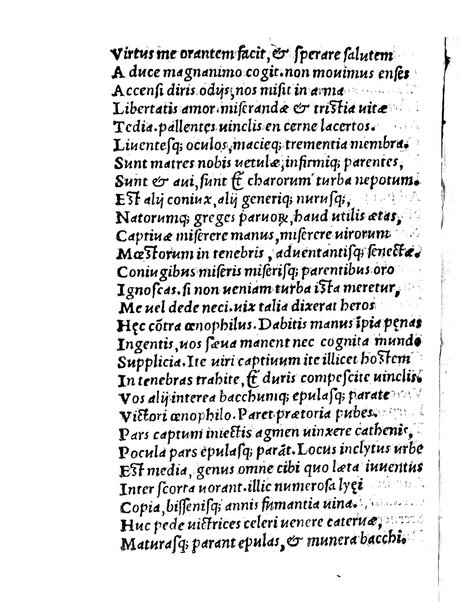 Virtus me orantem facit, & sperare salutem
A duce magnanimo cogit. non mouimus enses
Accensi diris odijs, nos misit in arma
Libertatis amor. miserandæ & tristia uitæ
Tedia. pallentes uinclis en cerne lacertos.
Liuentesq; oculos, macieq; trementia membra.
Sunt matres nobis uetulæ, infirmiq; parentes,
Sunt & aui, sunt & charorum turba nepotum.
Est alij coniux, alij generiq; nurusq;,
Natorumq; greges paruoꝝ, haud utilis ætas,
Captiuæ miserere manus, miserere uirorum
Mœstorum in tenebris, aduentantisq; senectæ.
Coniugibus miseris miserisq; parentibus oro
Ignoscas. si non ueniam turba ista meretur,
Me uel dede neci. uix talia dixerat heros
Hęc cōtra œnophilus. Dabitis manus īpia pęnas
Ingentis, uos sæua manent nec cognita mundo
Supplicia. Ite uiri captiuum ite illicet hostem
In tenebras trahite, & duris compescite uinclis.
Vos alij interea bacchumq; epulasq; parate
Victori œnophilo. Paret prætoria pubes.
Pars captum iniectis agmen uinxere cathenis,
Pocula pars epulasq; parāt. Locus inclytus urbe
Est media, genus omne cibi quo læta iuuentus
Inter scorta uorant. illic numerosa lyęi
Copia, bissenisq; annis fumantia uina.
Huc pede uictrices celeri uenere cateruæ,
Maturasq; parant epulas, & munera bacchi.